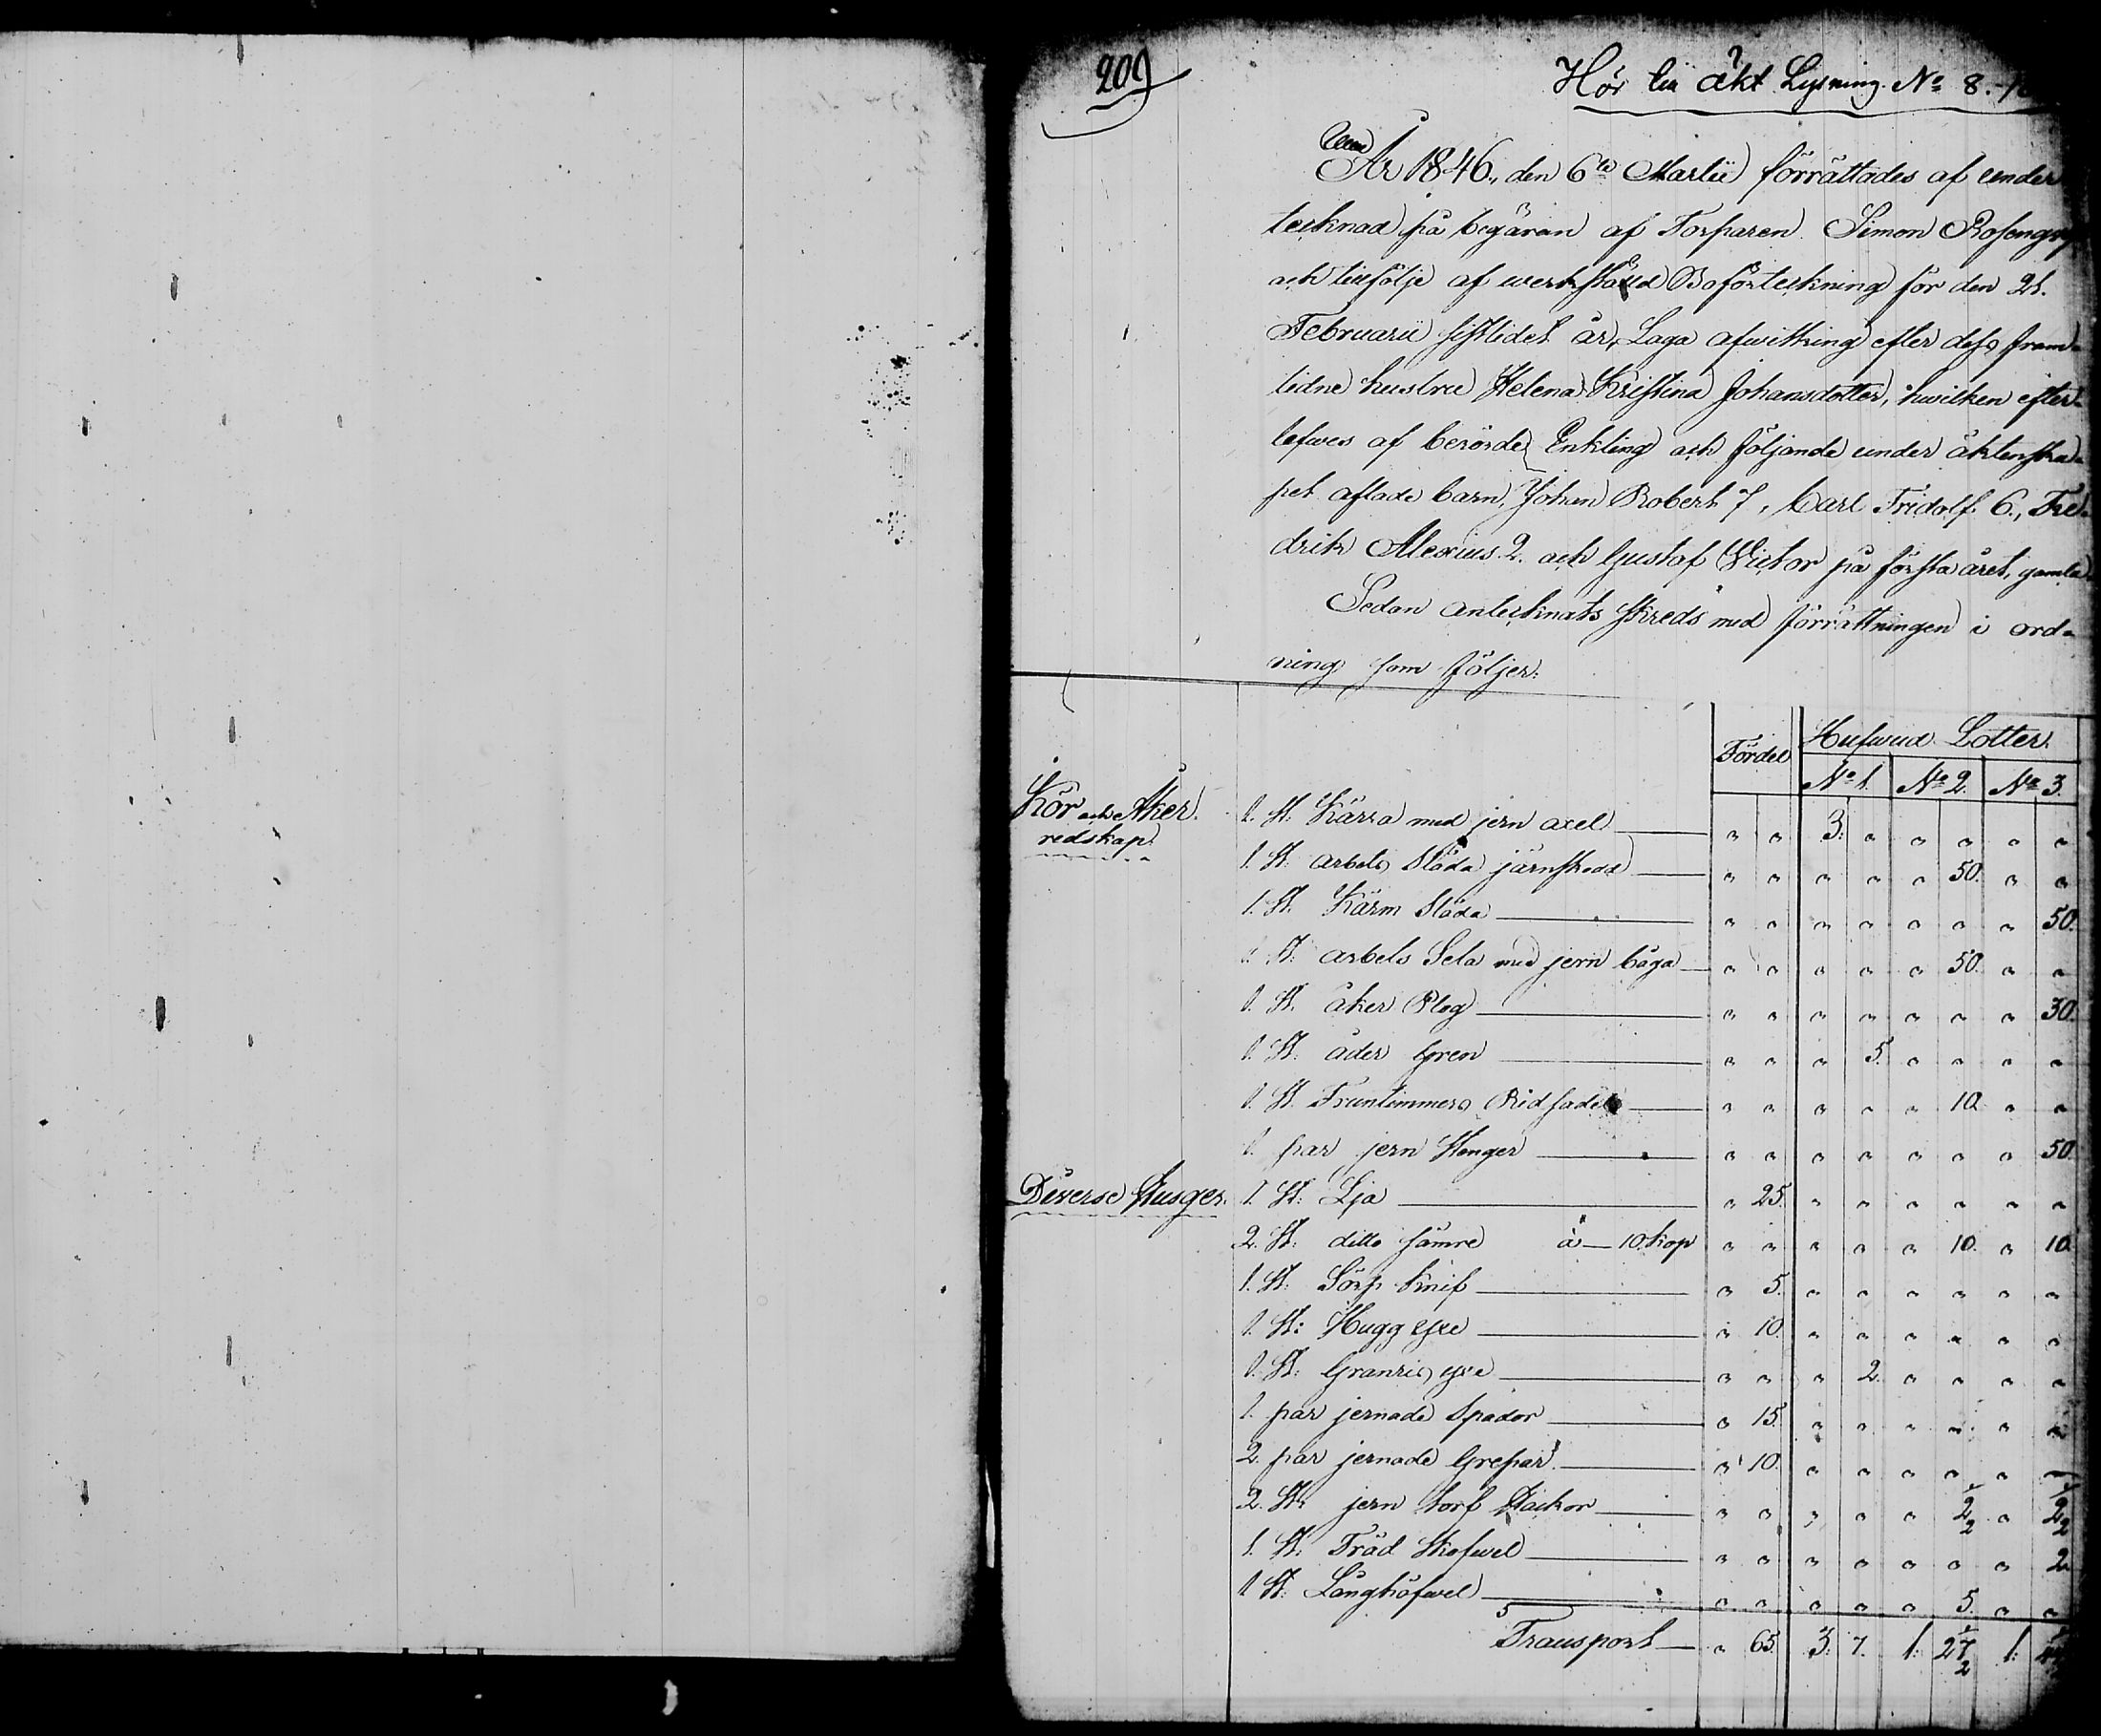 209
Hör til äkt Lysning No 8.
År 1846., den 6te Martii förrättades af under
tecknad på begäran af Torparen Simon Rosengr
och tillföljé af werkstäld Boförteckning för den 21.
Februarii sistlidet år, Laga afwittring efter dess fram-
lidne hustru Helena Kristina Johansdotter, hwilken efter-
lefwes af berörde Enkling och följande under äktenska-
pet aflade barn, Johan Robert 7, Carl Fridolf 6., Fre-
drik Alexius 2. och Gustaf Wictor på första året, gamla.
Sedan antecknats skreds med förrättningen i ord-
ning som följer:
Fördel Hufwud Lotter.
No 1. No 2. No 3.
Kör och Åker
redskap.
1. St. Kärra med jern axel " " 3: " " " " "
1. St. arbets Släda järnskodd " " " " " 50. " "
1. St. Kärm Släda " " " " " " " 50.
1. St. arbets Sela med jern båga " " " " " 50. " "
1. St. åker Plog " " " " " " " 30.
1. St. åder Gren " " " 5. " " " "
1. St. Fruntimmers Rid sadel " " " " " 10 " "
1. par jern Stenger " " " " " " " 50.
Diverse Husger. 1. St. Lja " 25. " " " " " "
2. St. ditto sämre à — 10. kop " " " " " 10. " 10
1. St. Sörp Knif " 5. " " " " " "
1. St: Hugg yxe " 10. " " " " " "
1. St. Granris yxe " " " 2. " " " "
1. par jernade Spador " 15. " " " " " "
2. par jernade Grepar " 10. " " " " " "
2. St. jern torf Hackor " " " " " 2 1/2 " 2 1/2
1. St. Träd Skofwel " " " " " " " 2
1 St. Långhöfwel " " " " " 5. " "
Transport " 65 3: 7. 1: 27 1/2 1: